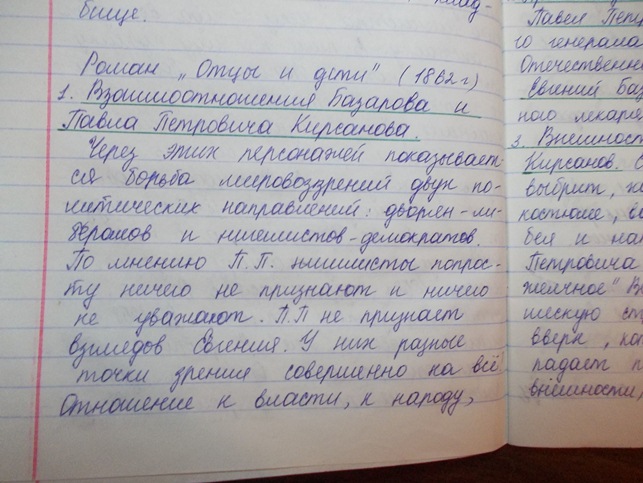 бище.
Роман „Отцы и дети" (1862 г)
1. Взаимоотношения Базарова и
Павла Петровича Кирсанова.
Через этих персонажей показывает-
ся борьба мировоззрений двух по-
литических направлений: дворян-ли-
бералов и нигилистов-демократов.
По мнению П.П. нигилисты попрос-
ту ничего не признают и ничего
не уважают. П.П не признает
взглядов Евгения. У них разные
точки зрения совершенно на всё
Отношение к власти, к народу,
Павел Петр
го генерала
Отечественн
Евгений баз
ного лекаря
3. Внешност
Кирсанов. С
выбрит, н
костюме, в
бея и на
Петровича
желчное" В
ческую ст
вверх, ко
падает п
внешности,